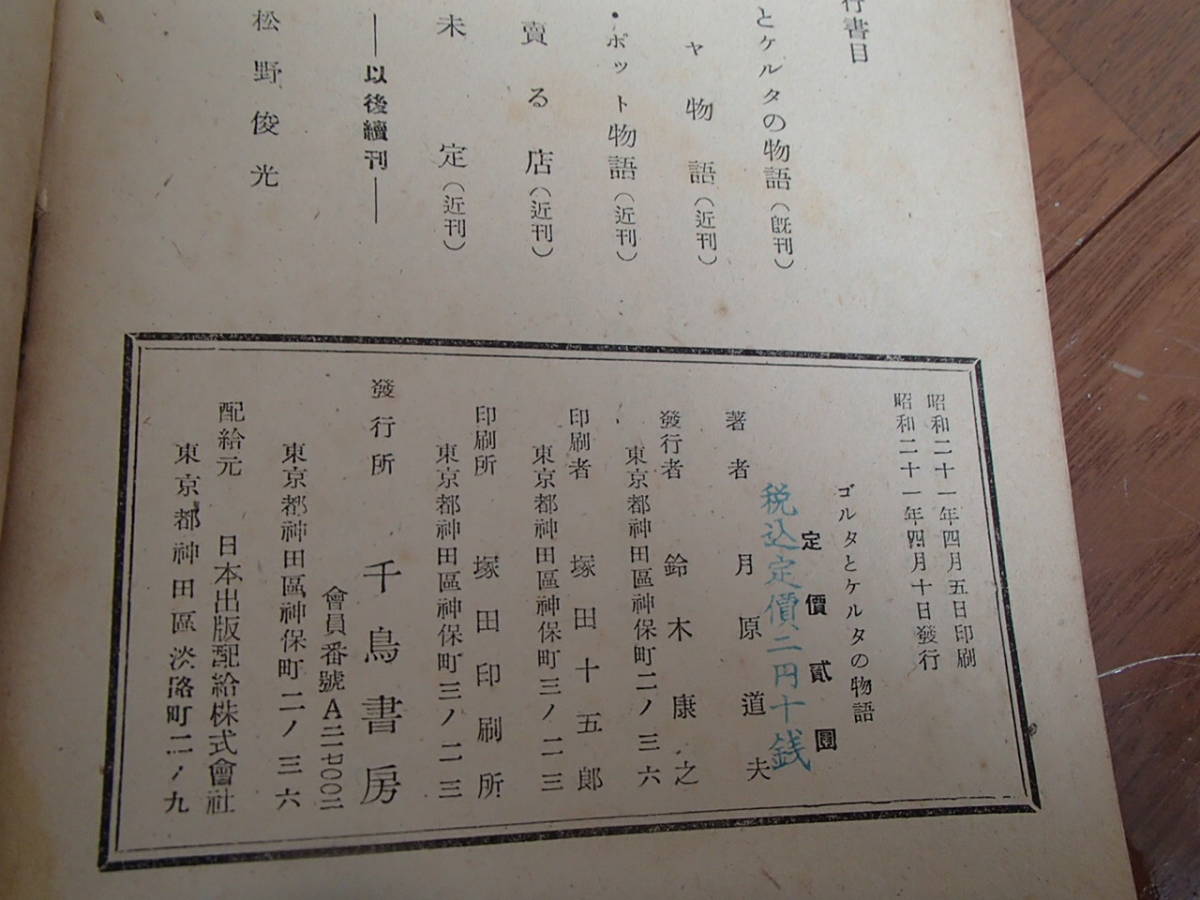 行書目
とケルタの物語（既刊）
ヤ物語（近刊）
・ポット物語（近刊）
賣る店（近刊）
未定（近刊）
―以後續刊―
松野俊光
昭和二十一年四月五日印刷
昭和二十一年四月十日發行
ゴルタとケルタの物語
定價貳圓
税込定價二円十銭
著者 月原道夫
發行者 鈴木康之
東京都神田區神保町二ノ三六
印刷者 塚田十五郎
東京都神田區神保町三ノ二三
印刷所 塚田印刷所
東京都神田區神保町三ノ二三
發行所 千鳥書房
會員番號A二七〇〇二
東京都神田區神保町二ノ三六
配給元 日本出版配給株式會社
東京都神田區淡路町二ノ九